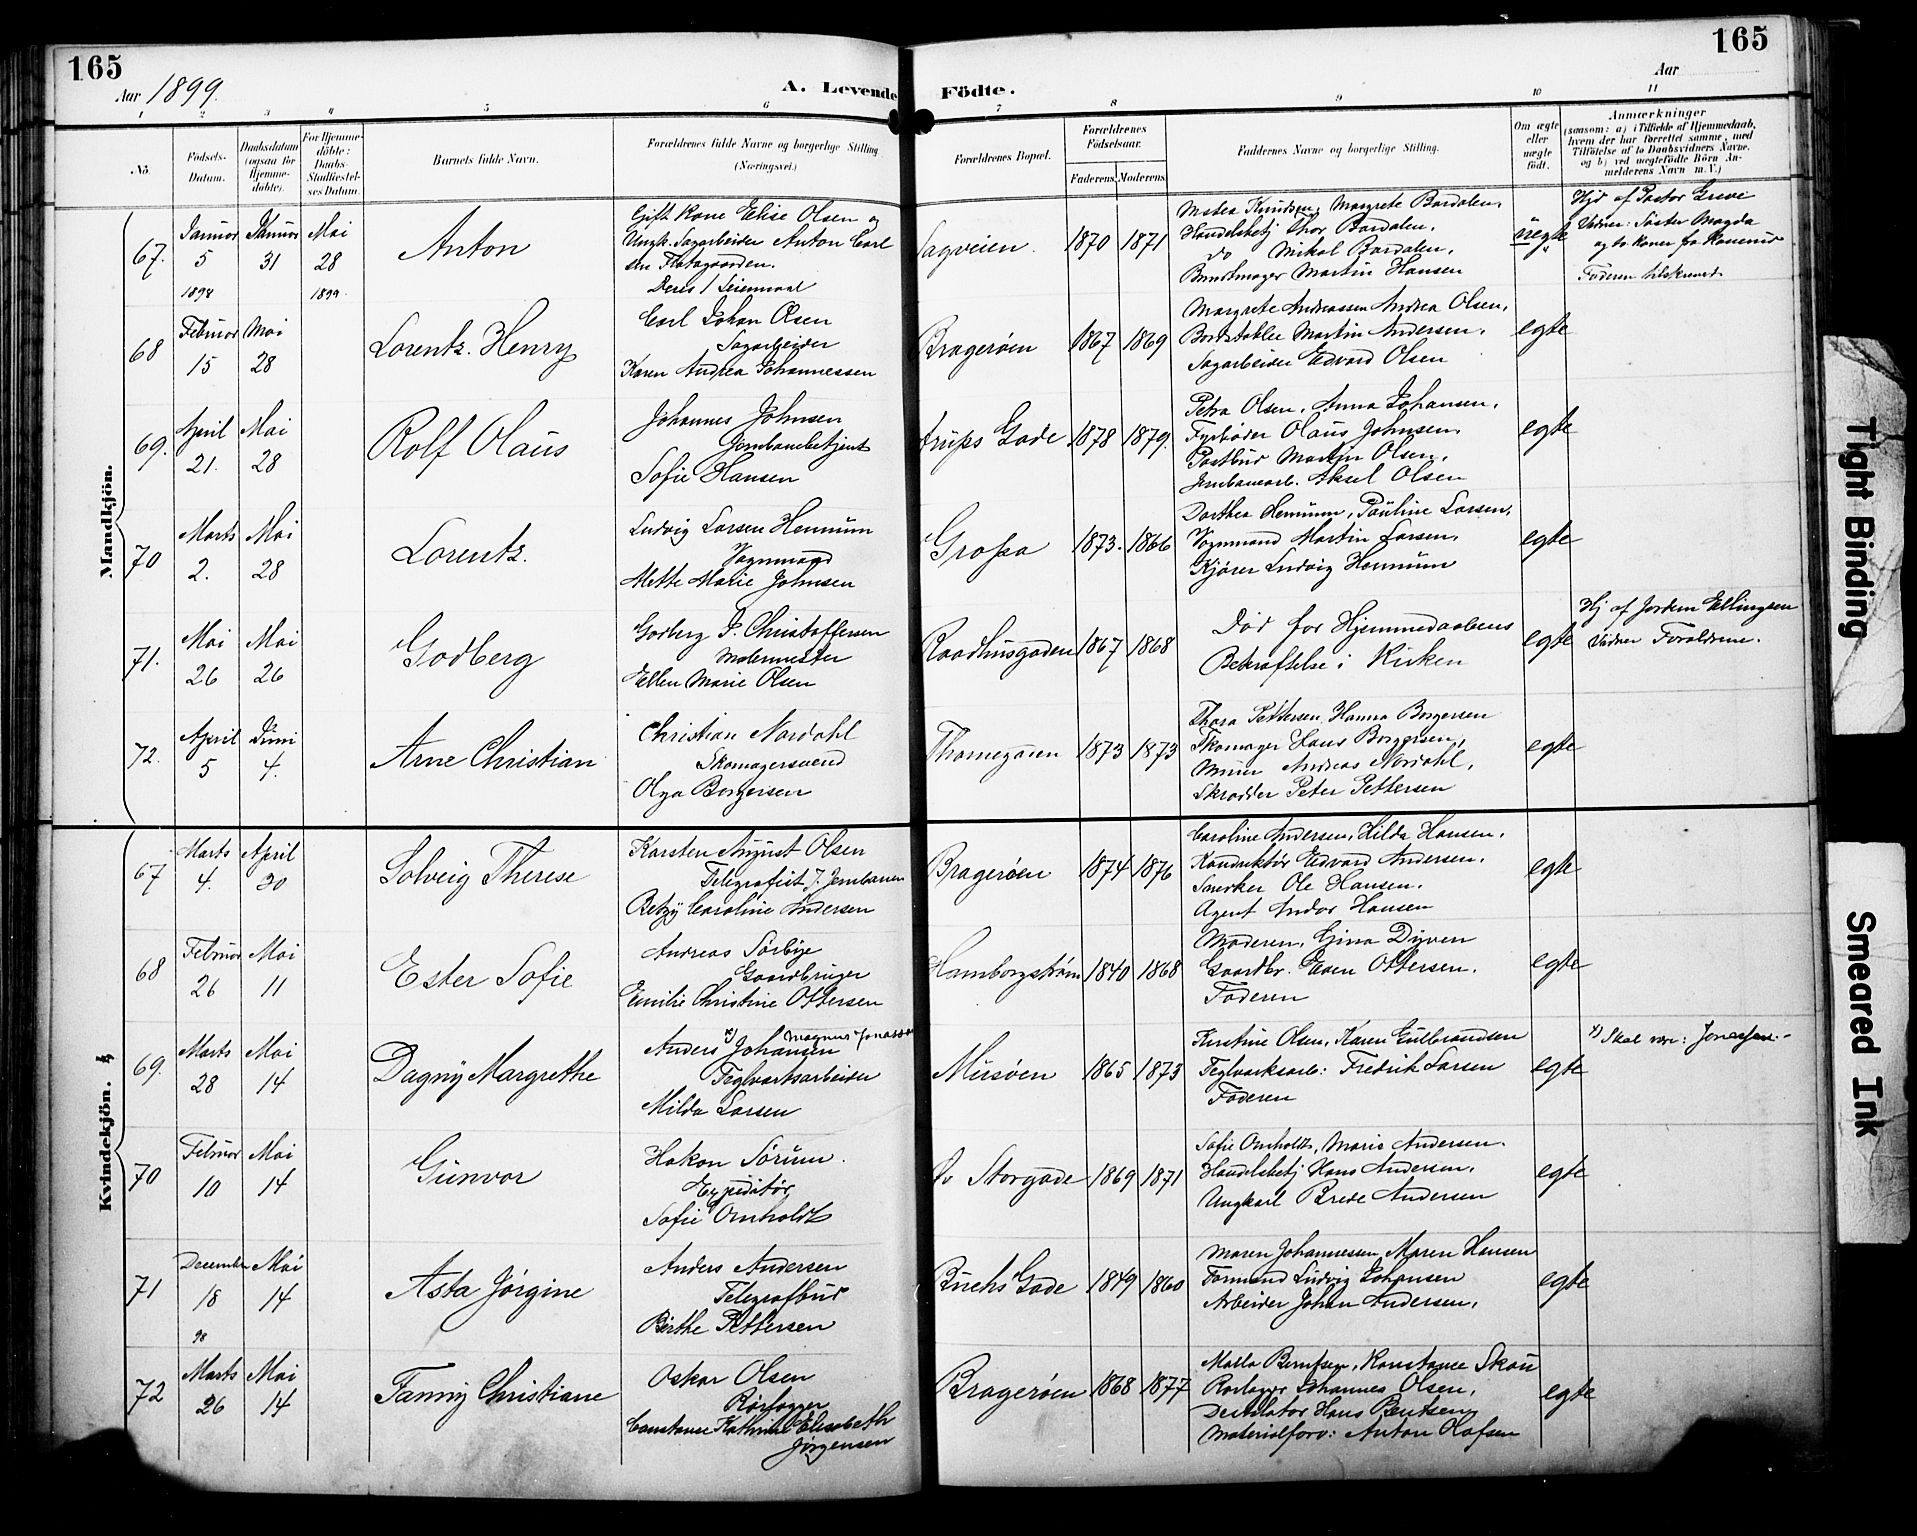 165
165
Aar 1899.
A. Levende Fødte.
Aar
1 2 3 4 5 6 7 8 9 10 11
No.
Fødsels-
Datum.
Daabsdatum
(ogsaa for
Hjemme-
døbte).
For Hjemme-
døbte:
Daabs-
Stadfæstel-
ses Datum.
Barnets fulde Navn.
Forældrenes fulde Navne og borgerlige Stilling
(Næringsvei.)
Forældrenes Bopæl.
Forældrenes
Fødselsaar.
Faderens. Moderens.
Faddernes Navne og borgerlige Stilling.
Om ægte
eller
uægte
født.
Anmærkninger
(saasom: a) i Tilfælde af Hjemmedaab,
hvem der har forrettet samme, med
Tilføielse af to Daabsvidners Navne,
og b) ved uegtefødte Børn An-
melderens Navn m. V.)
Mandkjön.
67. Januar 5 1898 Januar 31 Mai 28 1899.
Anton
Gift Kone Elise Olsen og
Ungk. Sagarbeider Anton Carl
sen Flatagaarden.
Deres 1 Leiermaal
Sagveien. 1870 1871
Matea Knudsen, Margrete Bardalen,
Handelsbetj Thor Bardalen,
do Mikal Bardalen,
Buntmager Martin Hansen
uegte
Hjd af Pastor Greve
Vidner: Søster Magda
Faderen tilskrevet
68 Februar 15 Mai 28
Lorentz Henry
Carl Johan Olsen
Sagarbeider
Karen Andrea Johannessen
Bragerøen 1867 1869
Margrete Andreassen Andrea Olsen,
Bordstabler Martin Andersen,
Sagarbeider Edvard Olsen
egte
69. April 21. Mai 28
Rolf Olaus
Johannes Johnsen
Jernbanebetjent
Sofie Hansen
Gade 1878 1879.
Petra Olsen, Anna Johansen,
Fyrbøder Olaus Johnsen,
Postbud Martin Olsen,
Jernbanearb. Aksel Olsen
egte
70 Marts 2. Mai 28
Lorentz.
Ludvig Larsen Hennum
Vognmand
Mette Marie Johnsen
Grossa 1873. 1866
Dorthea Hennum, Pauline Larsen,
Vognmand Martin Larsen,
Kjører Ludvig Hennum
egte
71. Mai 26 Mai 26
Godberg
Godberg J. Christoffersen
Malermester
Ellen Marie Olsen
Raadhusgaden 1867 1868
Død før Hjemmedaabens
Bekræftelse i Kirken
egte
Hj af Jordem Ellingsen
Vidner Forældrene.
72. April 5 Juni 4.
Arne Christian
Christian Nordahl
Skomagersvend
Olga Borgersen
Thornegaten 1873 1873
Thora Pettersen, Hanna Borgersen
Skomager Hans Borgersen,
Murer Andreas Nordahl,
Skrædder Peter Pettersen
egte
Kvindekjön.
67 Marts 4. April 30
Solveig Therese
Karsten August Olsen
Telegrafist v. Jernbanen
Betzy Caroline Andersen
Bragerøen 1874 1876
Caroline Andersen, Hilda Hansen,
Konduktør Edvard Andersen,
Snedker Ole Hansen,
Agent Andor Hansen
egte
68 Februar 26 Mai 11
Ester Sofie
Andreas Sørbye
Gaardbruger
Emilie Christine Ottersen
Hamborgstrøm 1840 1868
Moderen, Gina Dyven
Gaardbr. Even Ottersen,
Faderen
egte
69. Marts 28 Mai 14
Dagny Margrethe
Magnus Jonassen
Anders x) Johansen
Teglværksarbeider
Milda Larsen
Mursøen 1865 1873
Kirstine Olsen, Karen Gulbrandsen
Teglværksarb: Fredrik Larsen
Faderen
egte
x) Skal være: Jonassen.-
70 Februar 10 Mai 14
Gunvor
Hakon Sørum.
Expeditør,
Sofie Ornholdt
Øv Storgade 1869 1871
Sofie Ornholdt, Marie Andersen.
Handelsbetj Hans Andersen,
Ungkarl Brede Andersen
egte
71 December 18 98 Mai 14
Asta Jørgine
Anders Andersen
Telegrafbud
Birthe Pettersen
Buchs Gade 1849 1860
Maren Johannessen, Maren Hansen
Formand Ludvig Johansen
Arbeider Johan Andersen,
egte
72 Marts 26 Mai 14
Fanny Christiane
Oskar Olsen
Rørlægger
Constance Kathrine Elisabeth
Jørgensen
Bragerøen 1868 1877
Malla Berntsen, Konstance Skou
Rørlægger Johannes Olsen,
Destilatør Hans Bentsen,
Materialforv: Anton Olafsen
egte
Tight Binding
Smeared Ink